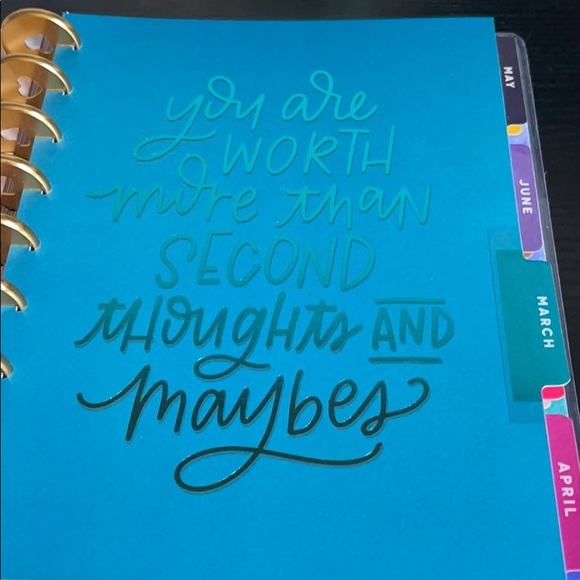 you are
WORTH
more than
SECOND
thoughts AND
maybes
MAY
JUNE
MARCH
APRIL